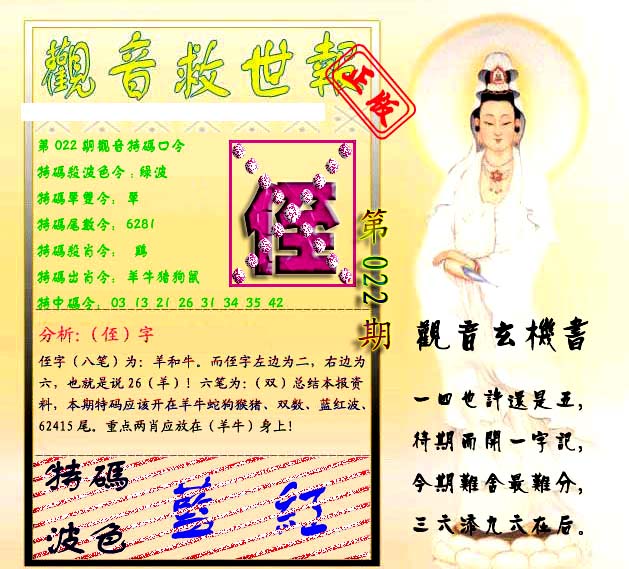 觀音救世報
正传
第022期觀音特碼口令
特碼殺波色令：绿波
特碼單雙令：單
特碼尾數令：6281
特碼殺肖令：鷄
特碼出肖令：羊牛猪狗鼠
特中碼令：03 13 21 26 31 34 35 42
侄
第022期
分析：（侄）字
侄字（八笔）为：羊和牛。而侄字左边为二，右边为
六，也就是说26（羊）！六笔为：（双）总结本报资
料，本期特码应该开在羊牛蛇狗猴猪、双数、蓝红波、
62415尾。重点两肖应放在（羊牛）身上！
特碼
波色
藍 红
觀音玄機書
一四也許還是五，
待期而開一字記，
今期難舍最難分，
三六添九六在后。